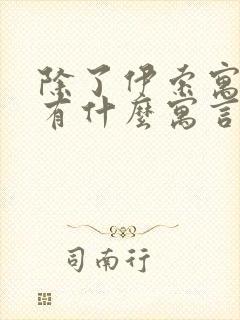 除了伊索寓
有什麼寓言
司南行